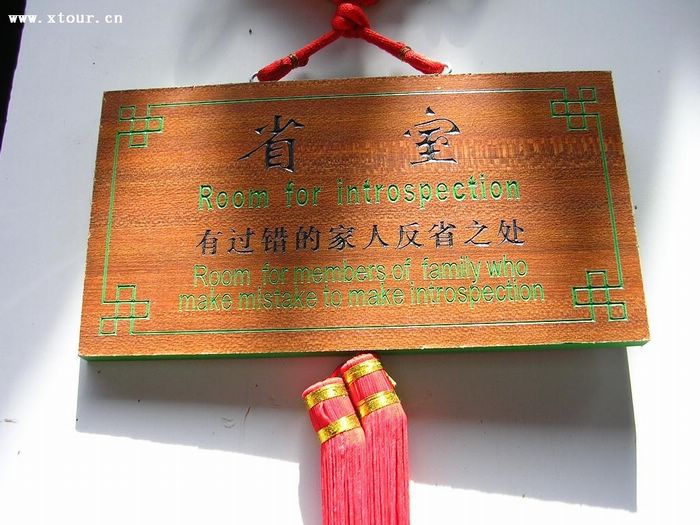 www.xtour.cn
省室
Room for introspection
有过错的家人反省之处
Room for members of family who
make mistake to make introspection